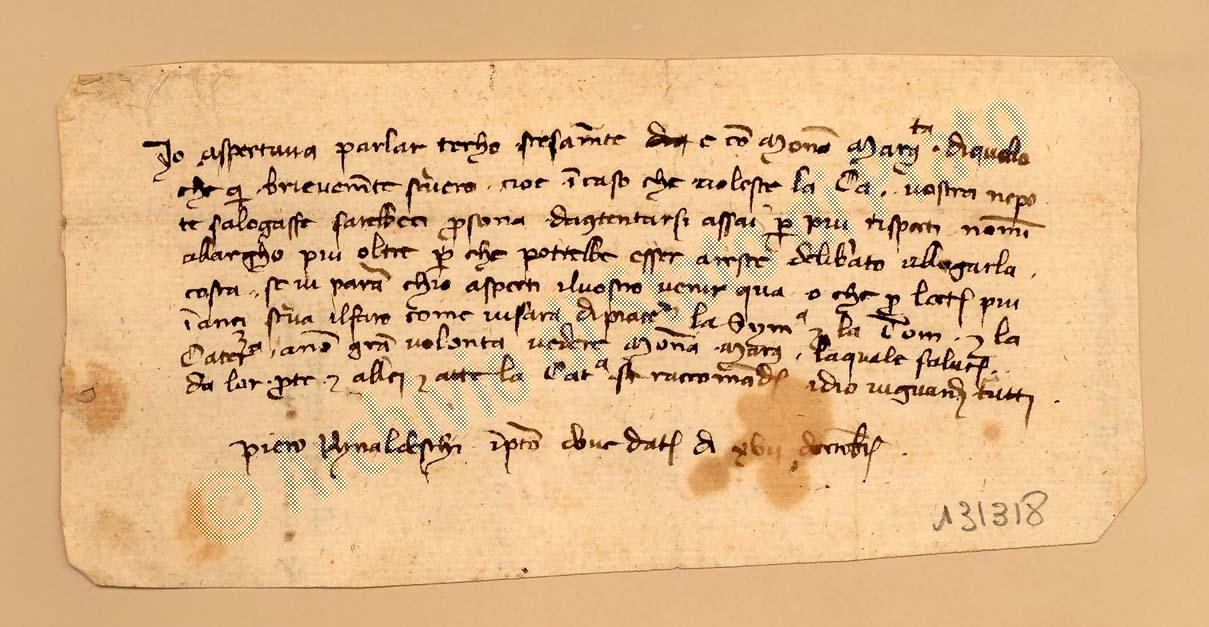 Io aspectava parlar techo stesamte e cō Monā Margta di quelo
che qi brievemte scrivero. cioe ī caso che voleste la Ca. vostra nepo
te salogasse sarebbeci psona dagtentarsi assai p piu rispecti nō mi
allargho piu oltre p che potrebbe esser areste delibrato allogarla
costa. se vi parā chio aspecti il vostro venir qua o che p lectr piu
īanci scriva il faro come vi sara di piacer la Syma e la Tom. e la
Caterīa. ano grā volonta vedere Monā Marg. la quale saluti
da lor pte e allei e atte la Cata si raccomād. idio vi guardi tutti.
Piero Rynaldeschi ī pto vbue dat di xvii doctobr.
131318
© Archivio di Stato